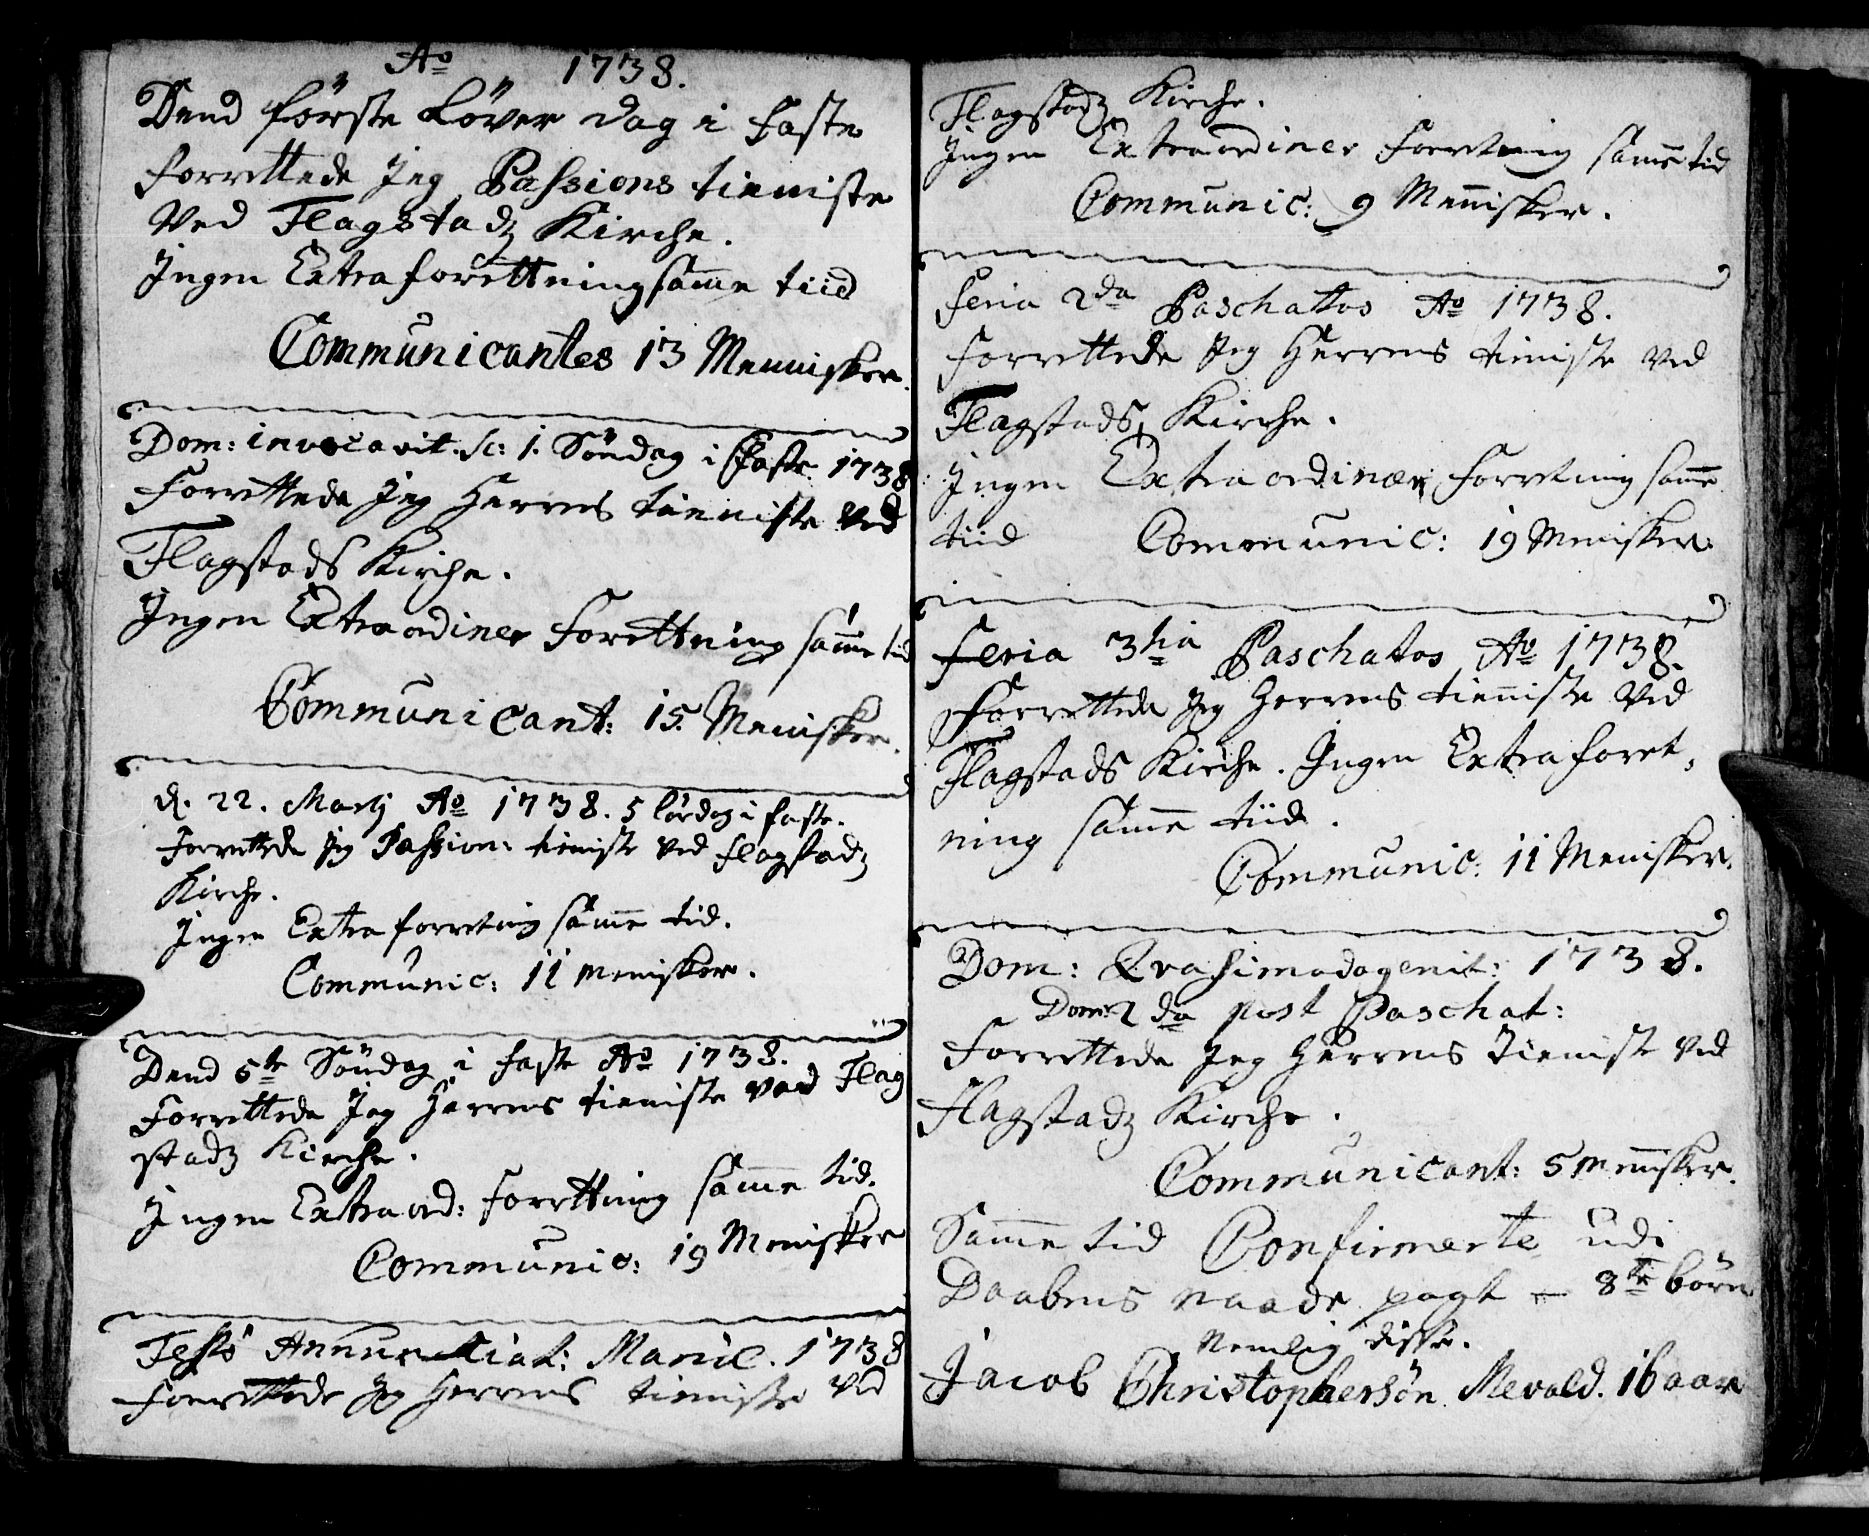 Ao 1738.
Dend förste Löverdag i Faste
Forrettede Jeg Passions tieniste
Ved Flagstadz Kirche.
Ingen Extraforettning samme tiid
Communicantes 13 Mennisker.
Dom: invocavit. sc: 1. Söndag i Faste 1738
Forrettede Jeg Herrens tieniste Ved
Flagstads Kirche.
Ingen Extraordiner Forettning samme tid
Communicant: 15. Menisker.
d. 22. Martj Ao 1738. 5 lördag i faste.
Forrettede Jeg Passion: tieniste Ved Flagstadz
Kirche.
Ingen Extra forretning samme tid.
Communic: 11 Menisker.
Dend 5te Söndag i Faste Ao 1738.
Forrettede Jeg Herrens tieniste Ved Flag
stadz Kirche.
Ingen Extraord: Forrettning samme tid.
Communic: 19 Menisker
Festo Annunctiat: Mariæ. 1738
Forrettede Jeg Herrens tieniste Ved
Flagstadz Kirche.
Ingen Extraordiner Forretnig samme tid
Communic: 9 Mennisker.
Feria 2da Paschatos Ao 1738.
Forrettede Jeg Herrens tieniste Ved
Flagstads Kirche.
Ingen Extraordinær Forretning samme
tiid Communic: 19 Menisker.
Feria 3tia Paschatos Ao 1738.
Forrettede Jeg Herrens tienniste Ved
Flagstads Kirche. Ingen Extraforet,
ning samme tiid.
Communic: 11 Menisker.
Dom: Qvasimodogenit: 1738.
Dom: 2da post Paschat:
Forrettede Jeg Herrens Tieniste Ved
Flagstadz Kirche.
Communicant: 5 Mennisker.
Samme tid Confirmerte udi
Daabens naade pagt - 8te börn
Nemlig disse.
Jacob Christophersön Mevold. 16 aar